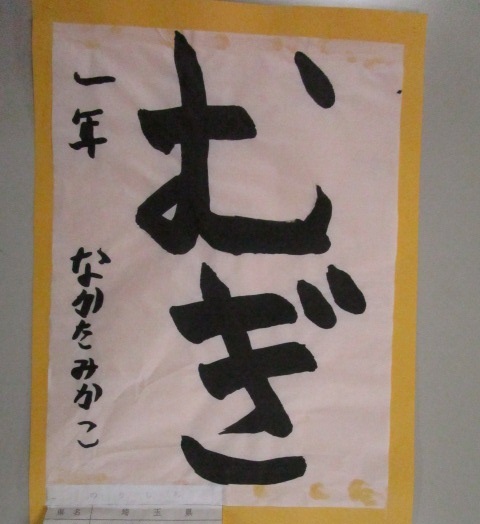 むぎ
一年 なかたみかこ
県名 埼玉県